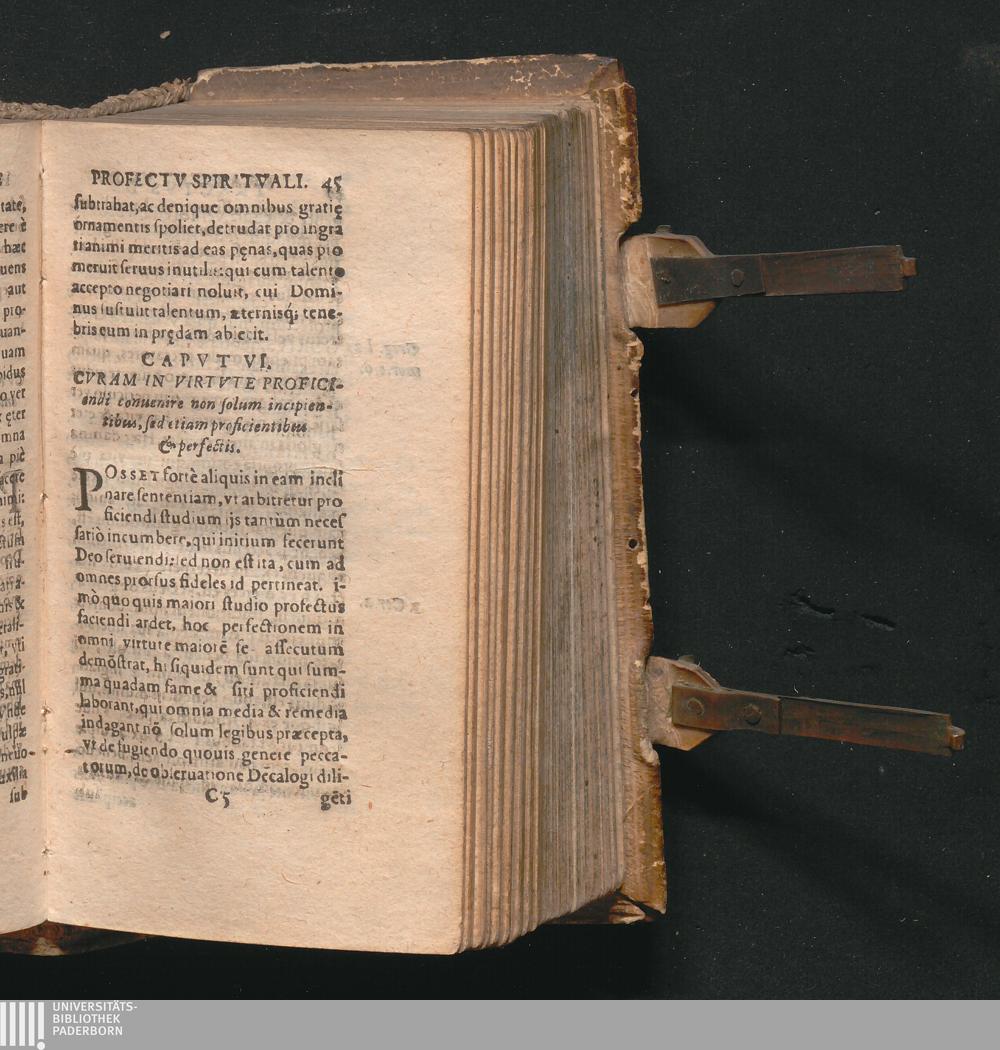 PROFECTV SPIRITVALI. 45
subtrahat, ac denique omnibus gratię
ornamentis spoliet, detrudat pro ingrã
tianimi meritis ad eas pęnas, quas pro
meruit seruus inutilis: qui cum talento
accepto negotiari noluit, cui Domi-
nus sustulit talentum, æternisq́; tene-
bris eum in prędam abiecit.
CAPVT VI.
CVRAM IN VIRTVTE PROFICI-
endi conuenire non solum incipien-
tibus, sed etiam proficientibus
& perfectis.
POSSET fortè aliquis in eam incli
nare sententiam, vt arbitretur pro
ficiendi studium ijs tantùm neces
sariò incumbere, qui initium fecerunt
Deo seruiendi: sed non est ita, cum ad
omnes prorsus fideles id pertineat. i-
mò quo quis maiori studio profectus
faciendi ardet, hoc perfectionem in
omni virtute maiorẽ se assecutum
demõstrat, hi siquidem sunt qui sum-
ma quadam fame & siti proficiendi
laborant, qui omnia media & remedia
indagant nõ solum legibus præcepta,
vt de fugiendo quouis genere pecca-
torum, de obseruatione Decalogi dili-
C5 gẽti
tate,
hæc
uens
aut
pro-
uan-
uam
o ver
mna
s est,
sub
UNIVERSITÄTS-
BIBLIOTHEK
PADERBORN